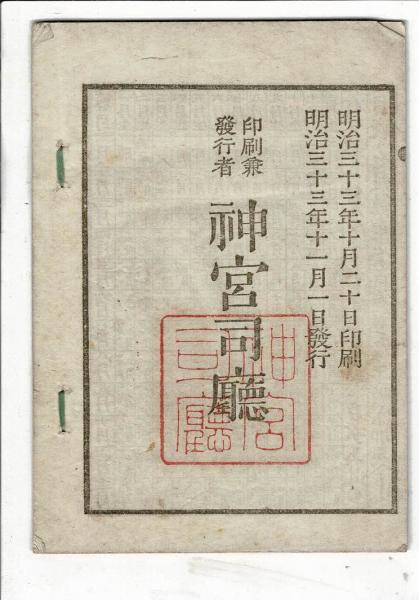 明治三十三年十月二十日印刷
明治三十三年十一月一日發行
印刷兼
發行者
神宮司廳
神宮
司廳